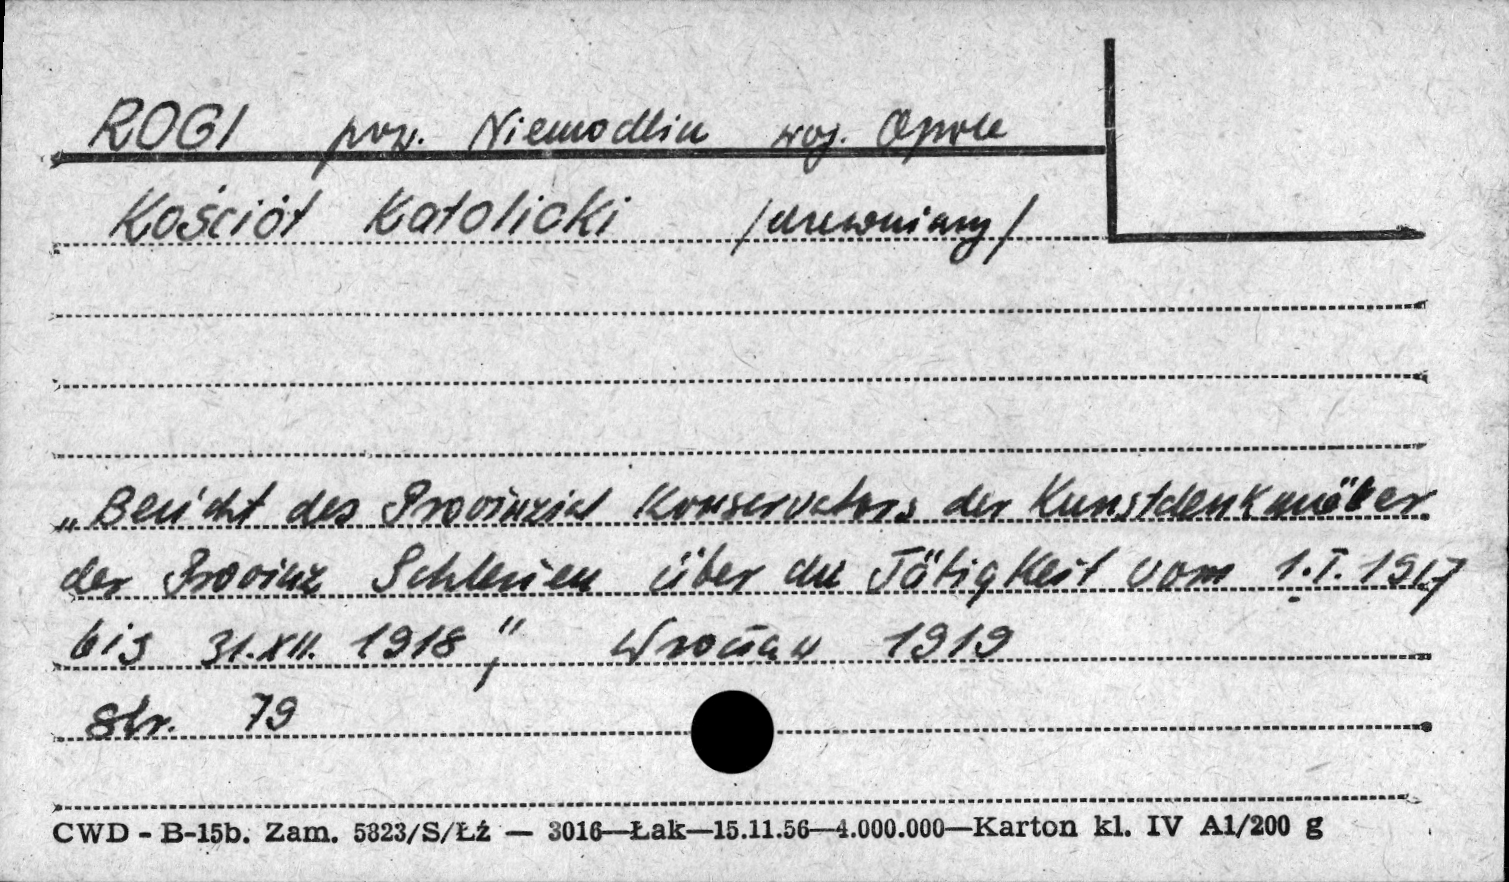 ROGI pow. Niemodlin woj. Opole
Kościół Katolicki /drewniany/
„Bericht des Provinzial Konservators der Kunstdenkmäler
der Provinz Schlesien über die Tätigkeit vom 1.I.1917
bis 31.XII. 1918", Wrocław 1919
str. 79
CWD - B-15b. Zam. 5823/S/Łż — 3016—Łak—15.11.56—4.000.000—Karton kl. IV A1/200 g